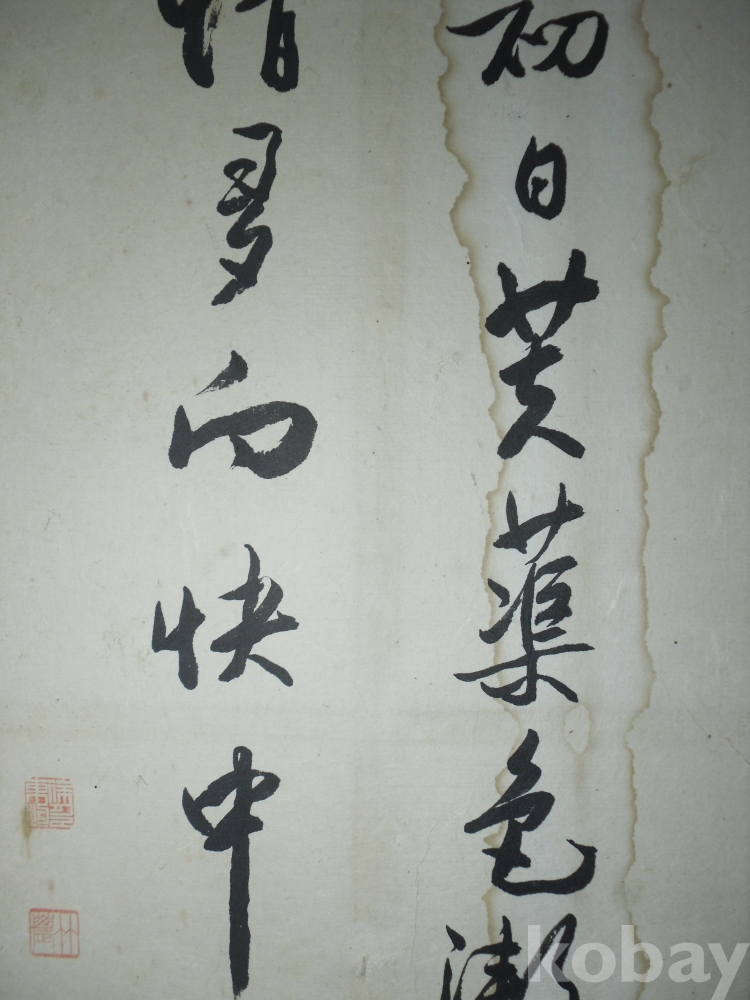 初日芙蕖色
情多向快中
竹農
kobay